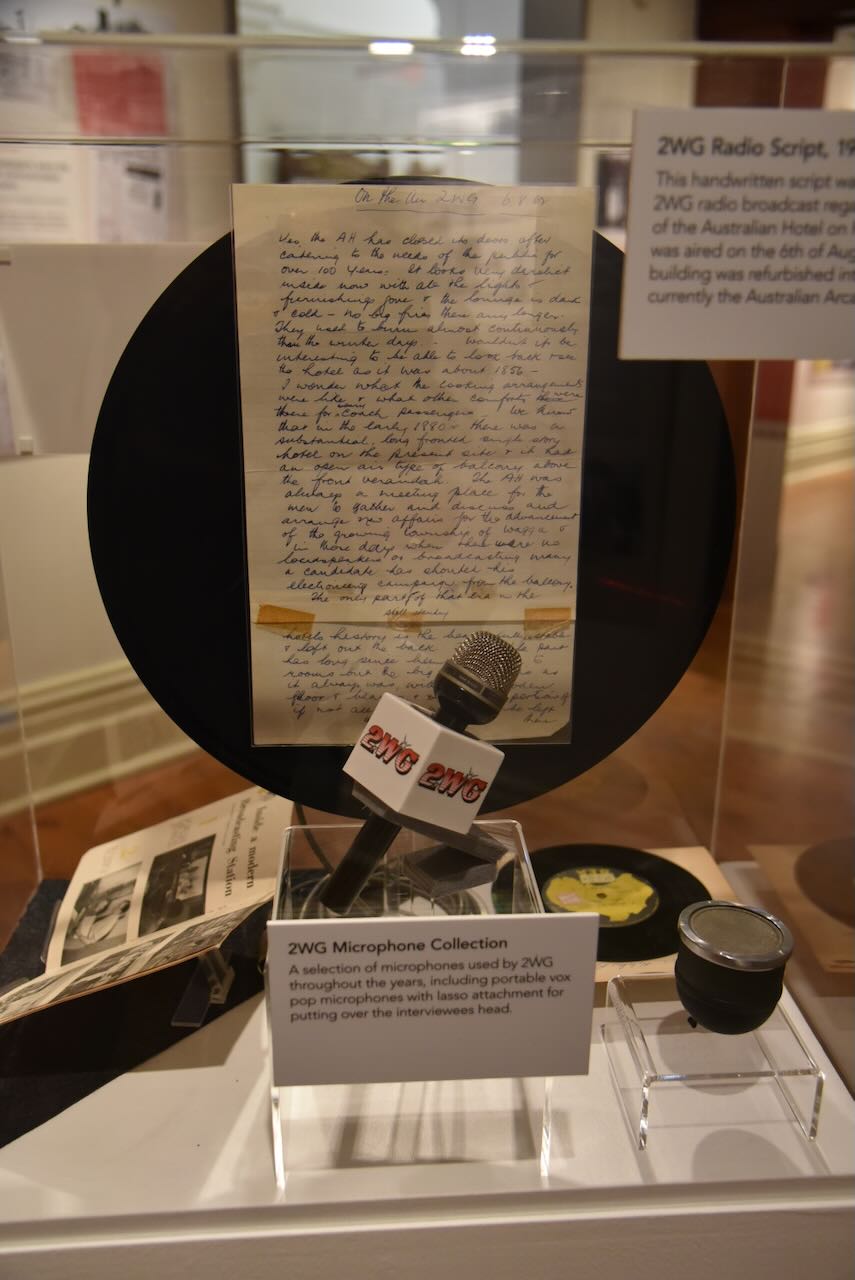 On the Air 2WG 6.8
Yes, the AH has closed its doors after
catering to the needs of the public for
over 100 years. It looks very derelict
inside now with all the lights &
furnishing gone & the lounge is dark
& cold - no big fires there any longer.
They used to burn almost continuously
thru the winter days - Wouldn't it be
interesting to be able to look back & see
the hotel as it was about 1856 -
I wonder what the cooking arrangements
were like & what other comforts were
there for coach passengers. We know
that in the early 1880s there was a
substantial, long fronted single story
hotel on the present site & it had
an open air type of balcony above
the front verandah. The AH was
always a meeting place for the
men to gather and discuss and
arrange affairs for the advancement
of the growing township of Wagga &
in those days when there were no
loudspeakers or broadcasting many
a candidate has shouted his
electioneering campaign from the balcony.
The only part of that era in the
still standing
hotels history is the
& left out the back part
has long since been
rooms but the big as
it always was, with
floor &
if not all be left
here
2WG Radio Script, 19
This handwritten script wa
2WG radio broadcast rega
of the Australian Hotel on
was aired on the 6th of Aug
building was refurbished int
currently the Australian Arca
2WG 2WG
Inside a modern
Broadcasting Station
2WG Microphone Collection
A selection of microphones used by 2WG
throughout the years, including portable vox
pop microphones with lasso attachment for
putting over the interviewees head.